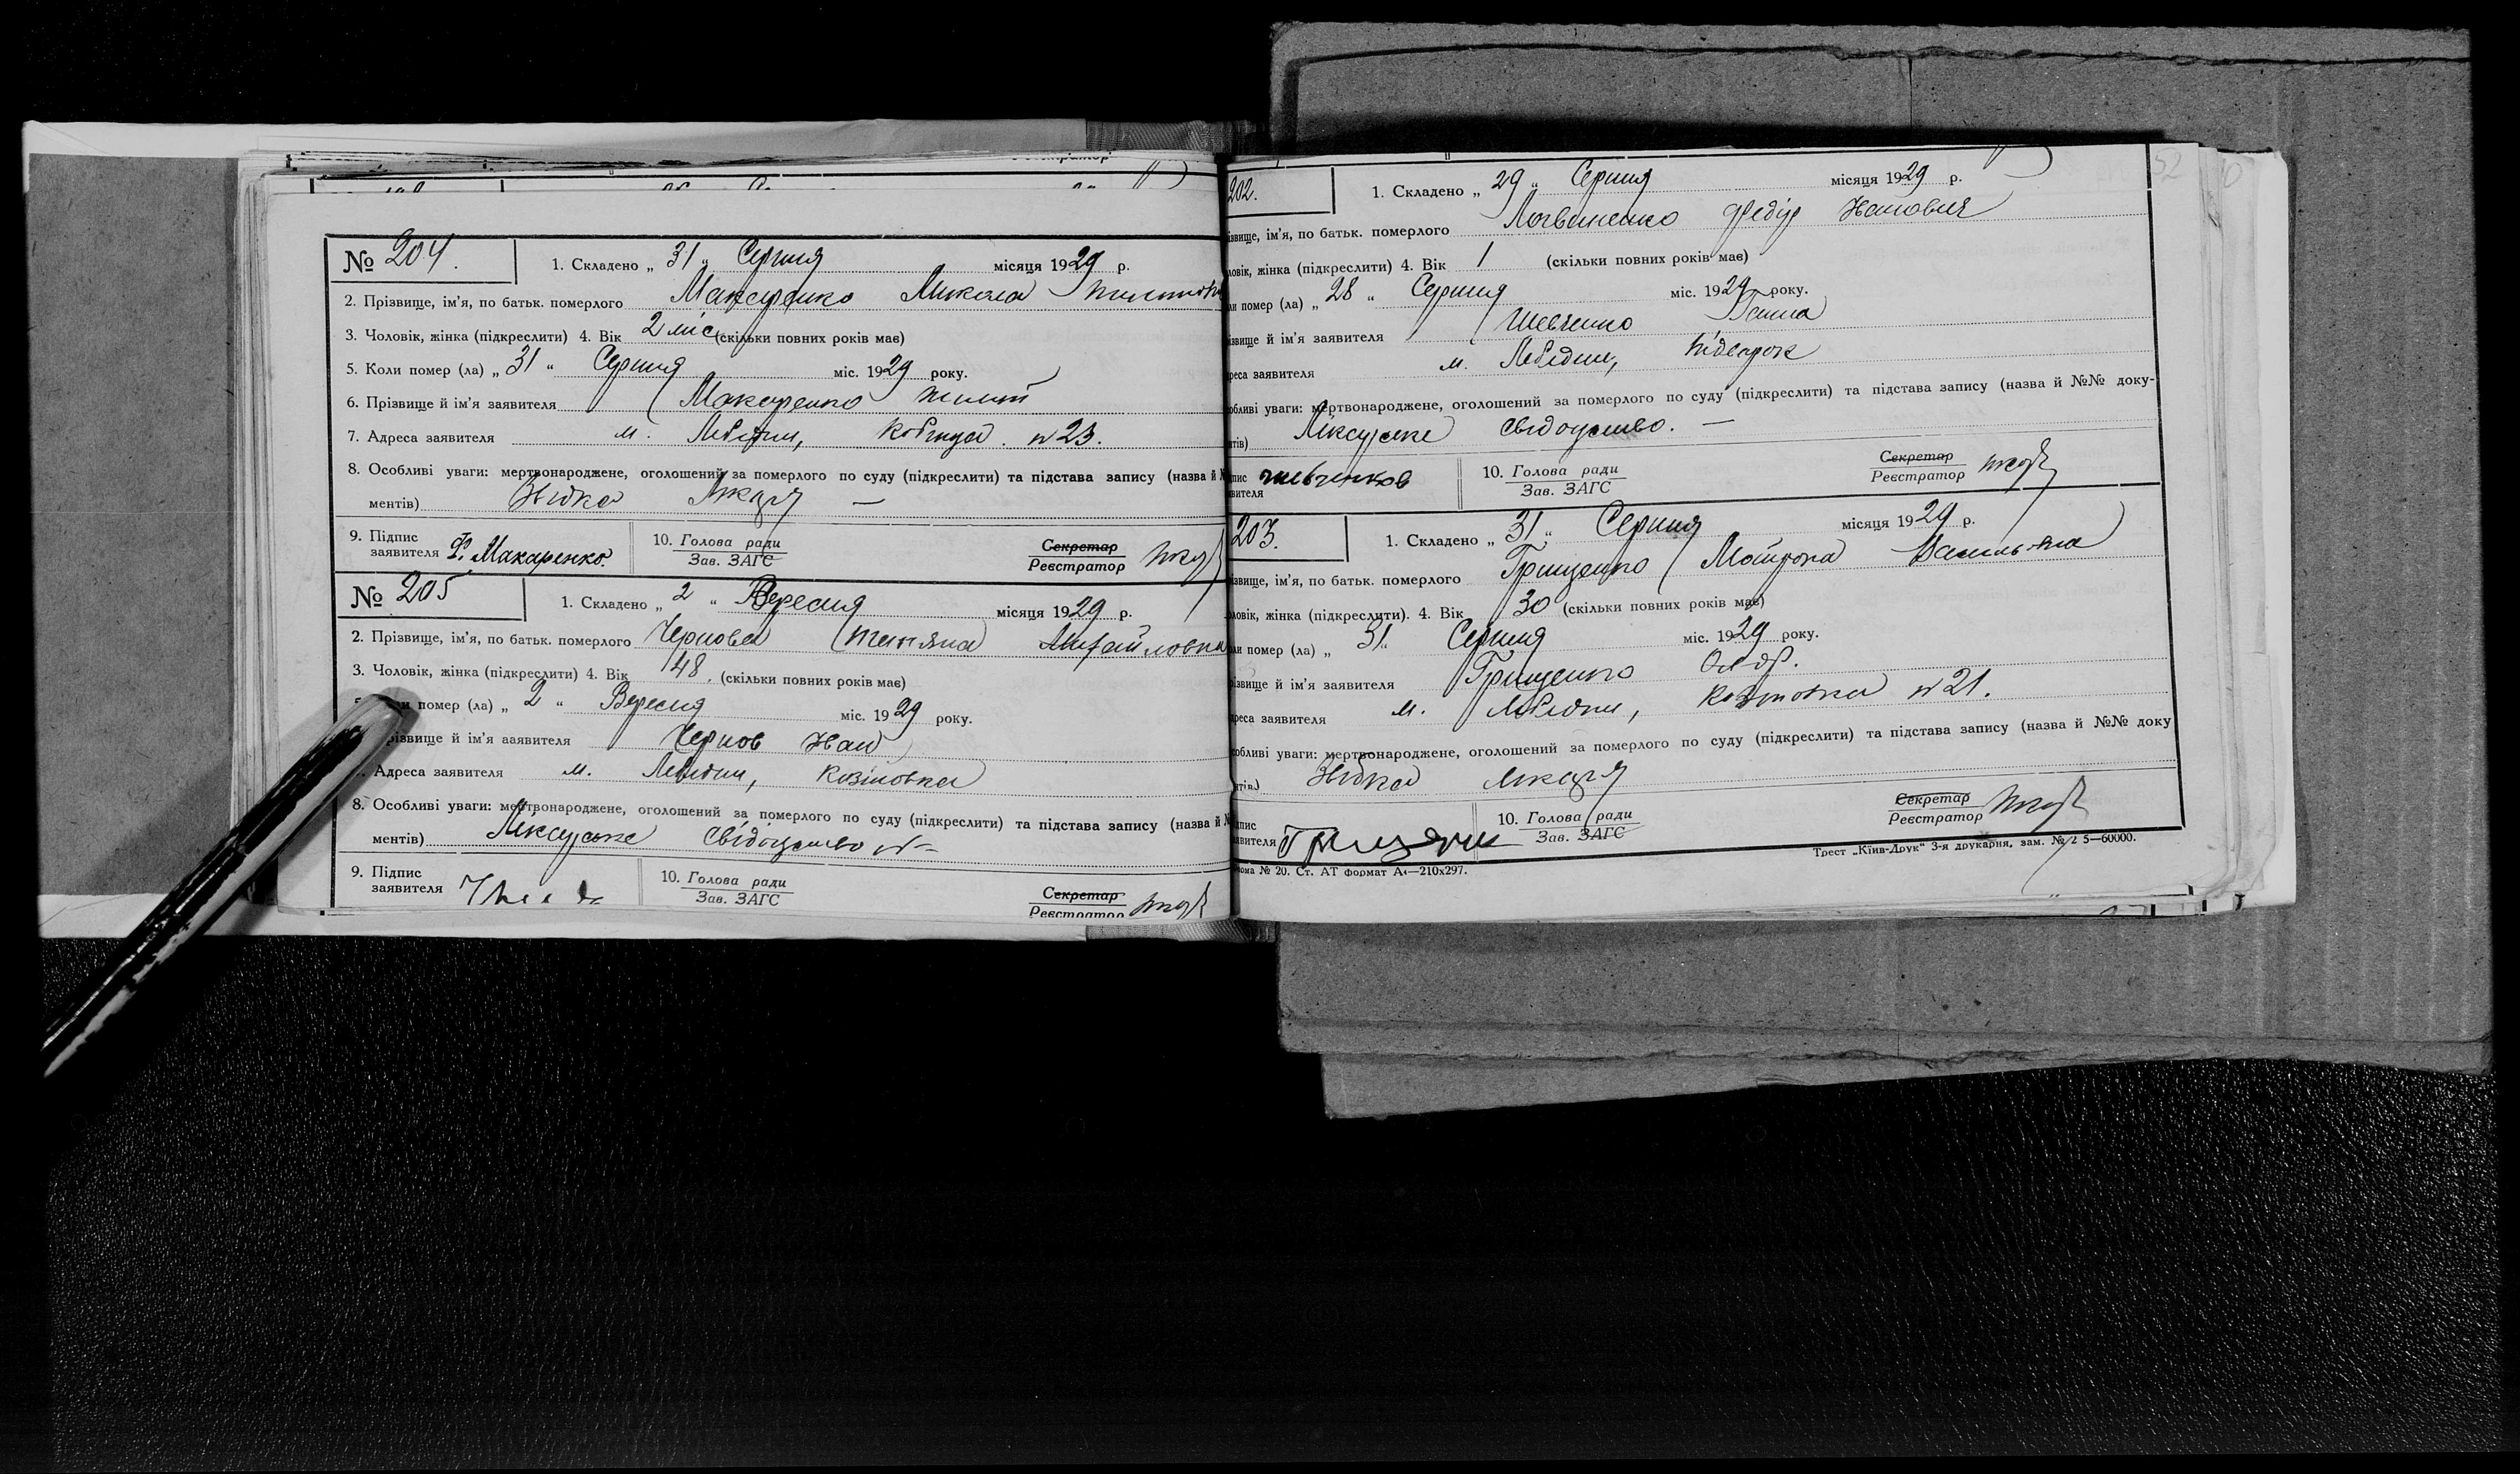 № 204.
1. Складено „ 31 “ Серпня місяця 1929 р.
2. Прізвище, ім'я, по батьк. померлого Макаренко Микола
3. Чоловік, жінка (підкреслити) 4. Вік 2 міс (скільки повних років має)
5. Коли помер (ла) „ 31 “ Серпня міс. 1929 року.
6. Прізвище й ім'я заявителя Макаренко
7. Адреса заявителя м. Лебедин, Кобища № 23.
8. Особливі уваги: мертвонароджене, оголошений за померлого по суду (підкреслити) та підстава запису (назва й
ментів) лікаря —
9. Підпис заявителя Макаренко.
10. Голова ради
Зав. ЗАГС
Секретар
Реєстратор
№ 205
1. Складено „ 2 “ Вересня місяця 1929 р.
2. Прізвище, ім'я, по батьк. померлого Чернова Тетяна Михайловна
3. Чоловік, жінка (підкреслити) 4. Вік 48. (скільки повних років має)
помер (ла) „ 2 “ Вересня міс. 1929 року.
різвище й ім'я заявителя Чернов Іван
Адреса заявителя м. Лебедин, Козіновка
8. Особливі уваги: мертвонароджене, оголошений за померлого по суду (підкреслити) та підстава запису (назва й
ментів) Лікарське свідоцтво
9. Підпис заявителя
10. Голова ради
Зав. ЗАГС
Секретар
Реєстратор
202.
1. Складено „ 29 “ Серпня місяця 1929 р.
ізвище, ім'я, по батьк. померлого Логвиненко Федір Іванович
ловік, жінка (підкреслити) 4. Вік 1 (скільки повних років має)
ли помер (ла) „ 28 “ Серпня міс. 1929 року.
ізвище й ім'я заявителя Шевченко Ганна
реса заявителя м. Лебедин,
обливі уваги: мертвонароджене, оголошений за померлого по суду (підкреслити) та підстава запису (назва й №№ доку-
нтів) Лікарське свідоцтво. —
пис явителя
10. Голова ради
Зав. ЗАГС
Секретар
Реєстратор
203.
1. Складено „ 31 “ Серпня місяця 1929 р.
ізвище, ім'я, по батьк. померлого Грищенко Мотрона Василівна
ловік, жінка (підкреслити). 4. Вік 30 (скільки повних років має)
ли помер (ла) „ 31 “ Серпня міс. 1929 року.
різвище й ім'я заявителя Грищенко
реса заявителя м. Лебедин, № 21.
собливі уваги: мертвонароджене, оголошений за померлого по суду (підкреслити) та підстава запису (назва й №№ доку
нтів) лікаря
дпис явителя
10. Голова ради
Зав. ЗАГС
Секретар
Реєстратор
Трест „Київ-Друк“ 3-я друкарня, зам. № 2 5—60000.
рма № 20. Ст. АТ формат А4—210х297.